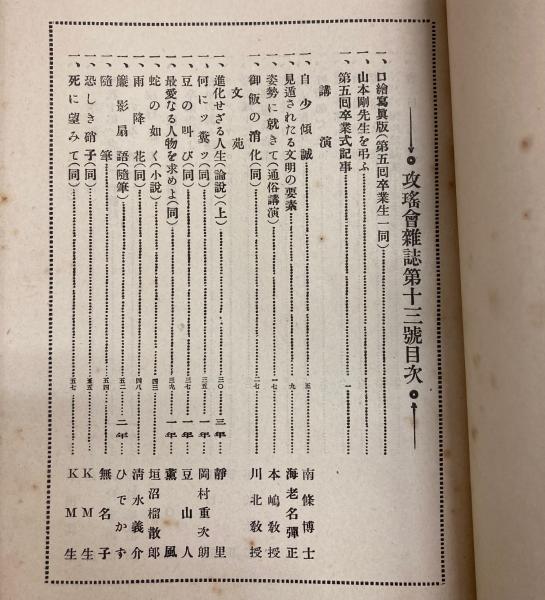 攻瑤會雜誌第十三號目次
一、口繪寫眞版(第五回卒業生一同)
一、山本剛先生を弔ふ
一、第五回卒業式記事 一
講演
一、自少傾誠 五 南條博士
一、見遁されたる文明の要素 九 海老名彈正
一、姿勢に就きて(通俗講演) 一七 本嶋教授
一、御飯の消化(同) 二七 川北教授
文苑
一、進化せざる人生(論說)(上) 三〇 三年 靜里
一、何にッ糞ッ(同) 三五 一年 岡村重次朗
一、豆の叫び(同) 三七 一年 豆山人
一、最愛なる人物を求めよ(同) 三九 一年 薫風
一、蛇の如く(小說) 四三 垣沼榴散郎
一、雨降花(同) 四八 淸水義介
一、簾影扇語(隨筆) 五二 二年 ひでかず
一、隨筆 五四 無名子
一、恐しき硝子(同) 五五 KM生
一、死に望みて(同) 五七 KM生